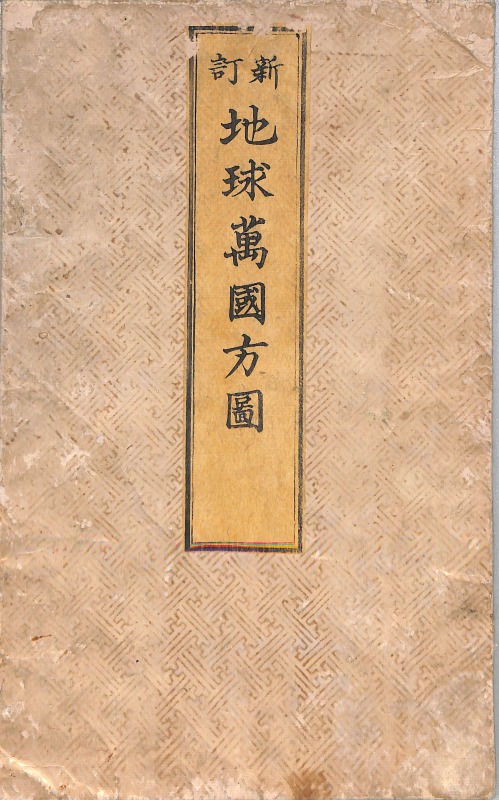 新訂
地球萬國方圖